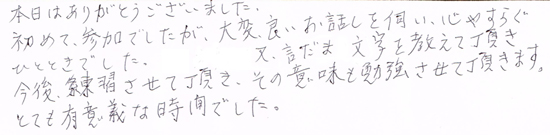 本日はありがとうございました。
初めて、参加でしたが、大変、良いお話しを伺い、心やすらぐ
ひとときでした。又、言だま文字を教えて頂き
今後、練習させて頂き、その意味も勉強させて頂きます。
とても有意義な時間でした。